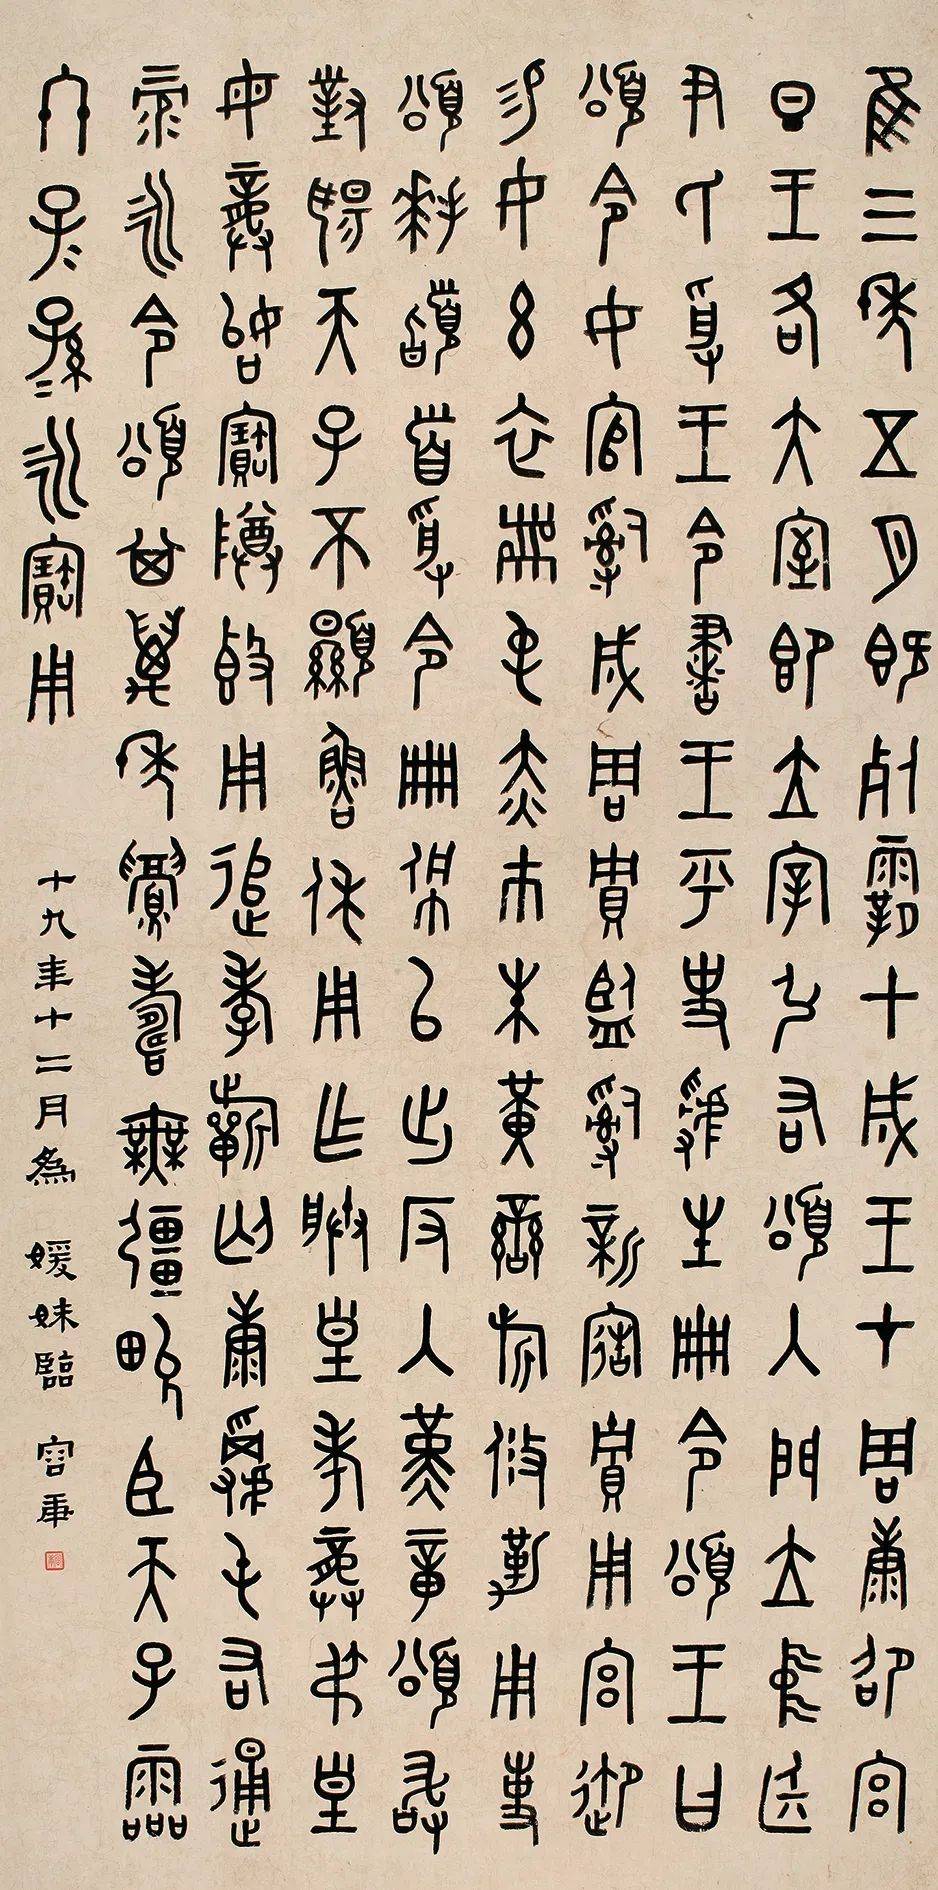 隹三年五月既死霸甲戌王才周康卲宮
旦王各大室即立宰引右頌入門立中廷
尹氏受王令書王乎史虢生冊令頌王曰
頌令女官𤔲成周貯監𤔲新造貯用宮御
易女玄衣黹屯赤巿朱黃䜌旂攸勒用事
頌拜𩒨首受令冊佩以出反入堇章頌敢
對揚天子不顯魯休用乍朕皇考龔弔皇
母龔始寶尊𣪘用追孝𣄨匄康𩁹屯右通
彔永令頌其萬年眉壽無疆畯臣天子霝
冬子=孫=永寶用
十九年十二月為 媛妹臨 容庚